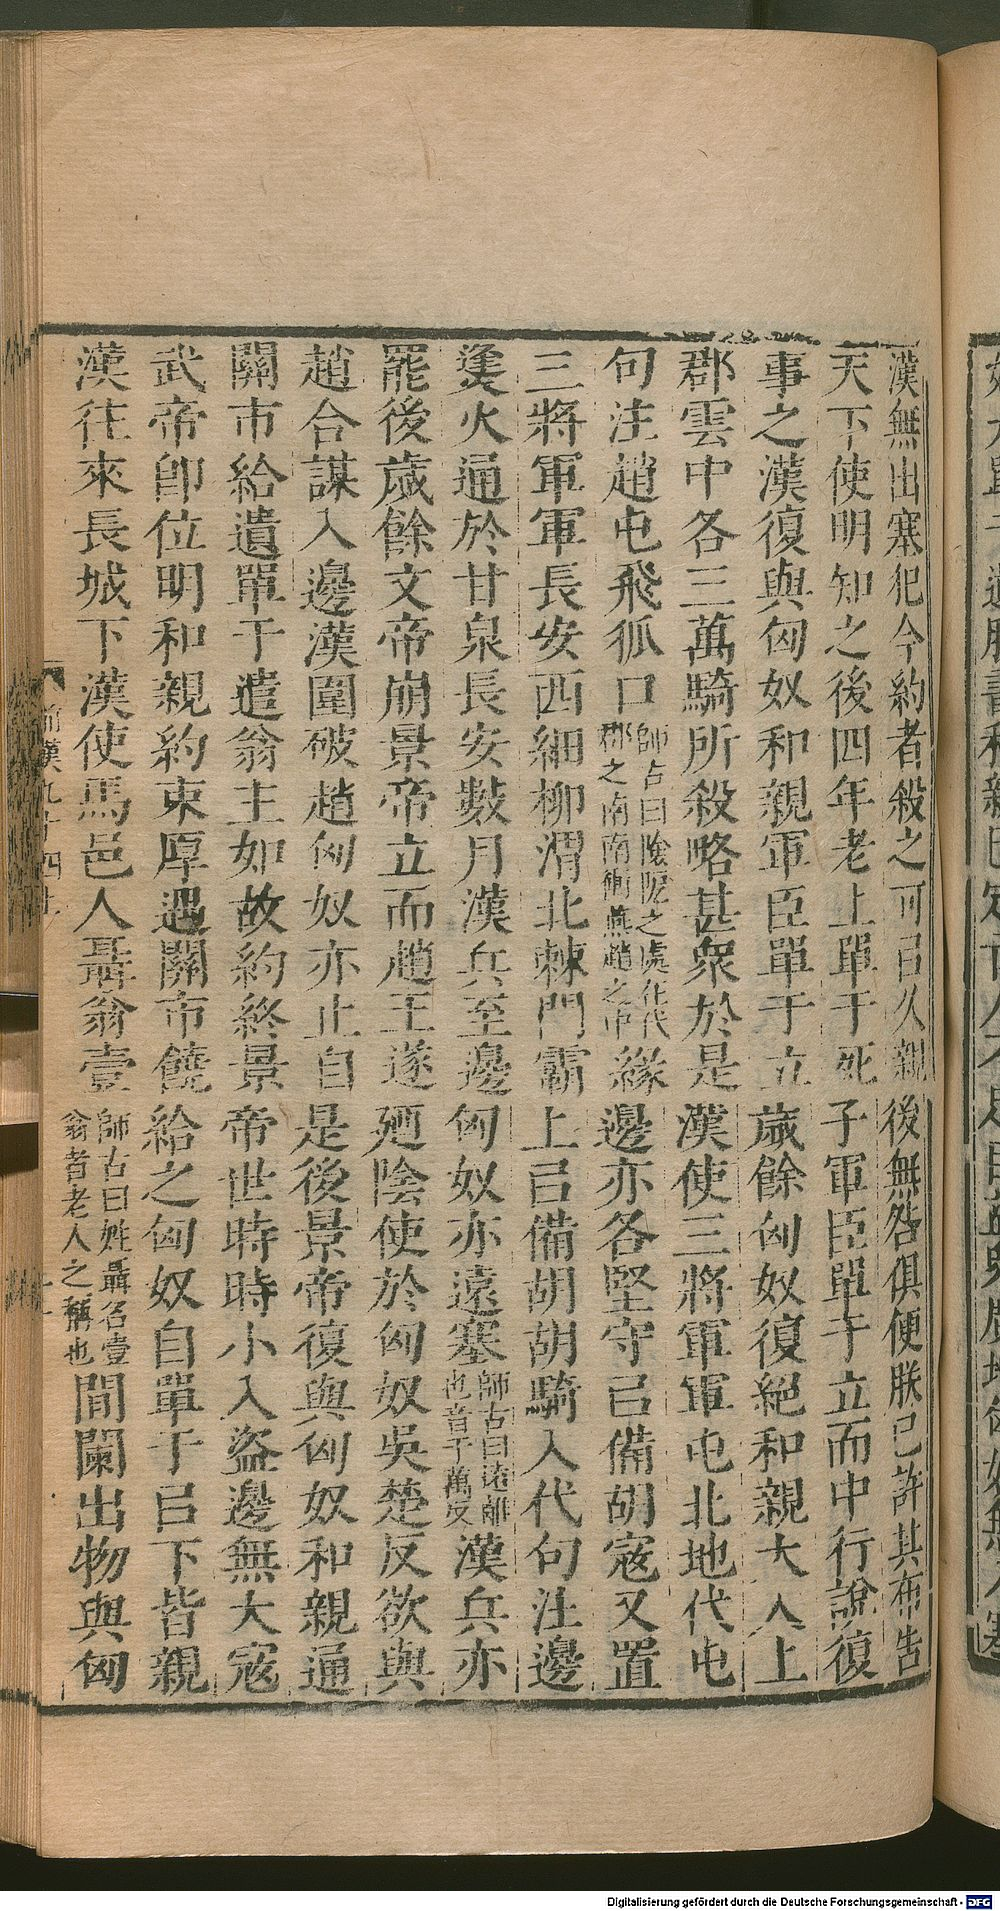 漢無出塞犯今約者殺之可㠯久親後無咎俱便朕已許其布告
天下使明知之後四年老上單于死子軍臣單于立而中行說復
事之漢復與匈奴和親軍臣單于立歲餘匈奴復絕和親大入上
郡雲中各三萬騎所殺略甚衆於是漢使三將軍軍屯北地代屯
句注趙屯飛狐口師古曰險阸之處在代郡之南南衝燕趙之中緣邊亦各堅守㠯備胡寇又置
三將軍軍長安西細柳渭北棘門霸上㠯備胡胡騎入代句注邊
㷭火通於甘泉長安數月漢兵至邊匈奴亦遠塞師古曰遠離也音于萬反漢兵亦
罷後歲餘文帝崩景帝立而趙王遂廼陰使於匈奴吳楚反欲與
趙合謀入邊漢圍破趙匈奴亦止自是後景帝復與匈奴和親通
關市給遺單于遣翁主如故約終景帝世時時小入盜邊無大寇
武帝卽位明和親約束厚遇關市饒給之匈奴自單于㠯下皆親
漢往來長城下漢使馬邑人聶翁壹師古曰姓聶名壹翁者老人之稱也間闌出物與匈
前漢九十四上
Digitalisierung gefördert durch die Deutsche Forschungsgemeinschaft - DFG